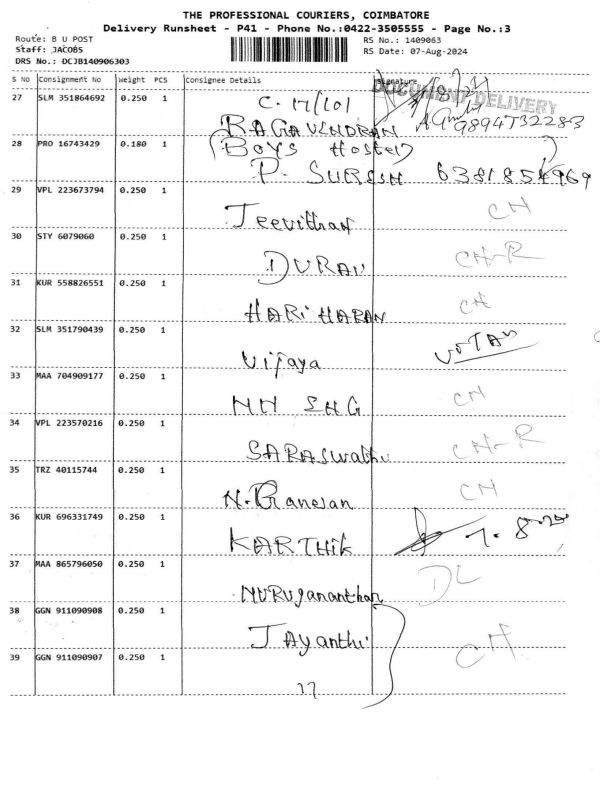 THE PROFESSIONAL COURIERS, COIMBATORE
Delivery Runsheet - P41 - Phone No.:0422-3505555 - Page No.:3
Route: B U POST
RS No.: 1409063
Staff: JACOBS
RS Date: 07-Aug-2024
DRS No.: DCJB140906303
S NO Consignment No Weight PCS Consignee Details Signature
DOCUMENT DELIVERY
27 SLM 351864692 0.250 1
RAGAVENDRAN 9894732283
28 PRO 16743429 0.180 1 (Boys Hostel)
P. SURESH 6381854969
29 VPL 223673794 0.250 1
Jeevithan CH
30 STY 6079060 0.250 1
DURAI CH-R
31 KUR 558826551 0.250 1
HARI HARAN CH
32 SLM 351790439 0.250 1
Vijaya
33 MAA 704909177 0.250 1
MM SHG CH
34 VPL 223570216 0.250 1
SARASwathi CH-R
35 TRZ 40115744 0.250 1
N. Ganesan CH
36 KUR 696331749 0.250 1
KARTHIK
37 MAA 865796050 0.250 1
MURUgananthan DL
38 GGN 911090908 0.250 1
Jayanthi CH
39 GGN 911090907 0.250 1
17